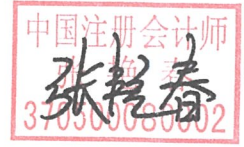 中国注册会计师
张艳春
370300080002